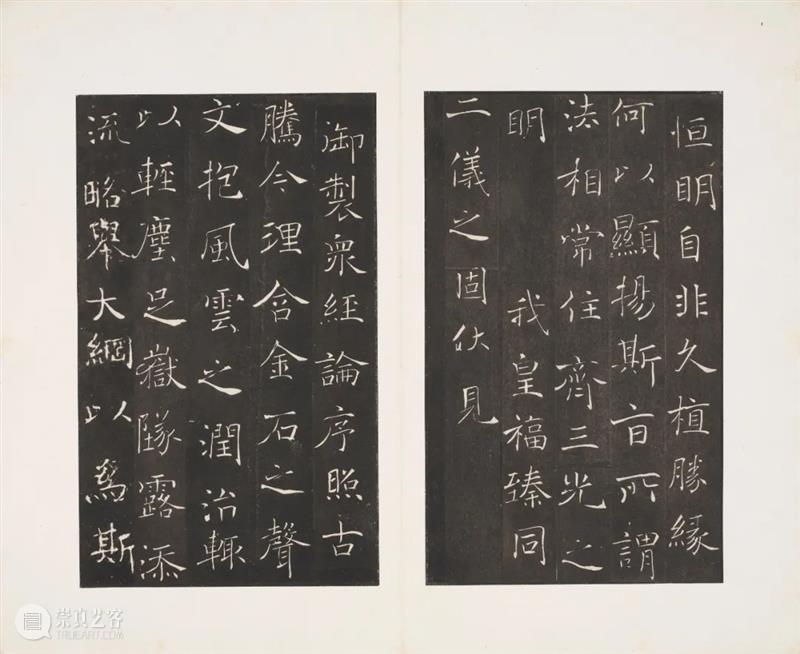 恒明自非久植勝緣
何以顯揚斯旨所謂
法相常住齊三光之
明　我皇福臻同
二儀之固伏見
御製衆經論序照古
騰今理含金石之聲
文抱風雲之潤治輒
以輕塵足嶽墜露添
流略舉大綱以爲斯
崇真艺客
TRUEART.COM